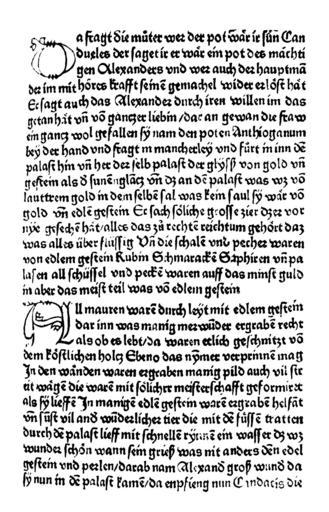 Da fragt die můter wer der pot wär ir sün Can
dueles der saget ir er wär ein pot des mächti
gen Alexanders vnd wer auch der hauptmā
der im mit höres krafft seinē gemachel wider erlöst hät
Er sagt auch das Alexander durch iren willen im das
getan hät vn̄ vō gantzer liebin/ dar an gewan die fraw
ein gancz wol gefallen sÿ nam den poten Anthioganum
bey der hand vnd fragt in mancherley vnd fürt in inn dē
palast hin vn̄ her der selb palast der glyssz von gold vn̄
gestein als d̄ sunēglācz vn̄ dz an dē palast was wz vō
lautterm gold in dem selbē sal was kein saul sÿ wär vō
gold vn̄ edlē gestein Er sach söliche grosse zier dz er vor
nÿe gesechē hät/ alles das zů rechtē reichtum gehört daz
was alles über flüssig Vn̄ die schalē vnd pecher waren
von edlem gestein Rubin Schmarackē Saphiren vn̄ pa
lasen all schüssel vnd peckē waren auff das minst guld
in aber das meist teil was vō edlem gestein
All mauren warē durch leÿt mit edlem gestein
dar inn was manig merwūder ergrabē recht
als ob es lebt/ da waren etlich geschnitzt vō
dem köstlichen holcz Ebeno das nÿmer verprinnē mag
In den wänden waren ergraben manig pild auch vil rit
tit wägē die warē mit sölicher meisterschafft geformirēt
als sÿ lieffē In manigē edlē gestein warē ergrabē helfāt
vn̄ süst vil and̄ wūderlicher tier die mit dē füssē tratten
durch dē palast lieff mit schnellē rÿnnē ein wasser dz wz
wunder schön wann sein grieß was nit anders dēn edel
gestein vnd perlen/ darab nam Alexand̄ groß wund̄ da
sÿ nun in dē palast kamē/ da enpfieng nun Candacis die